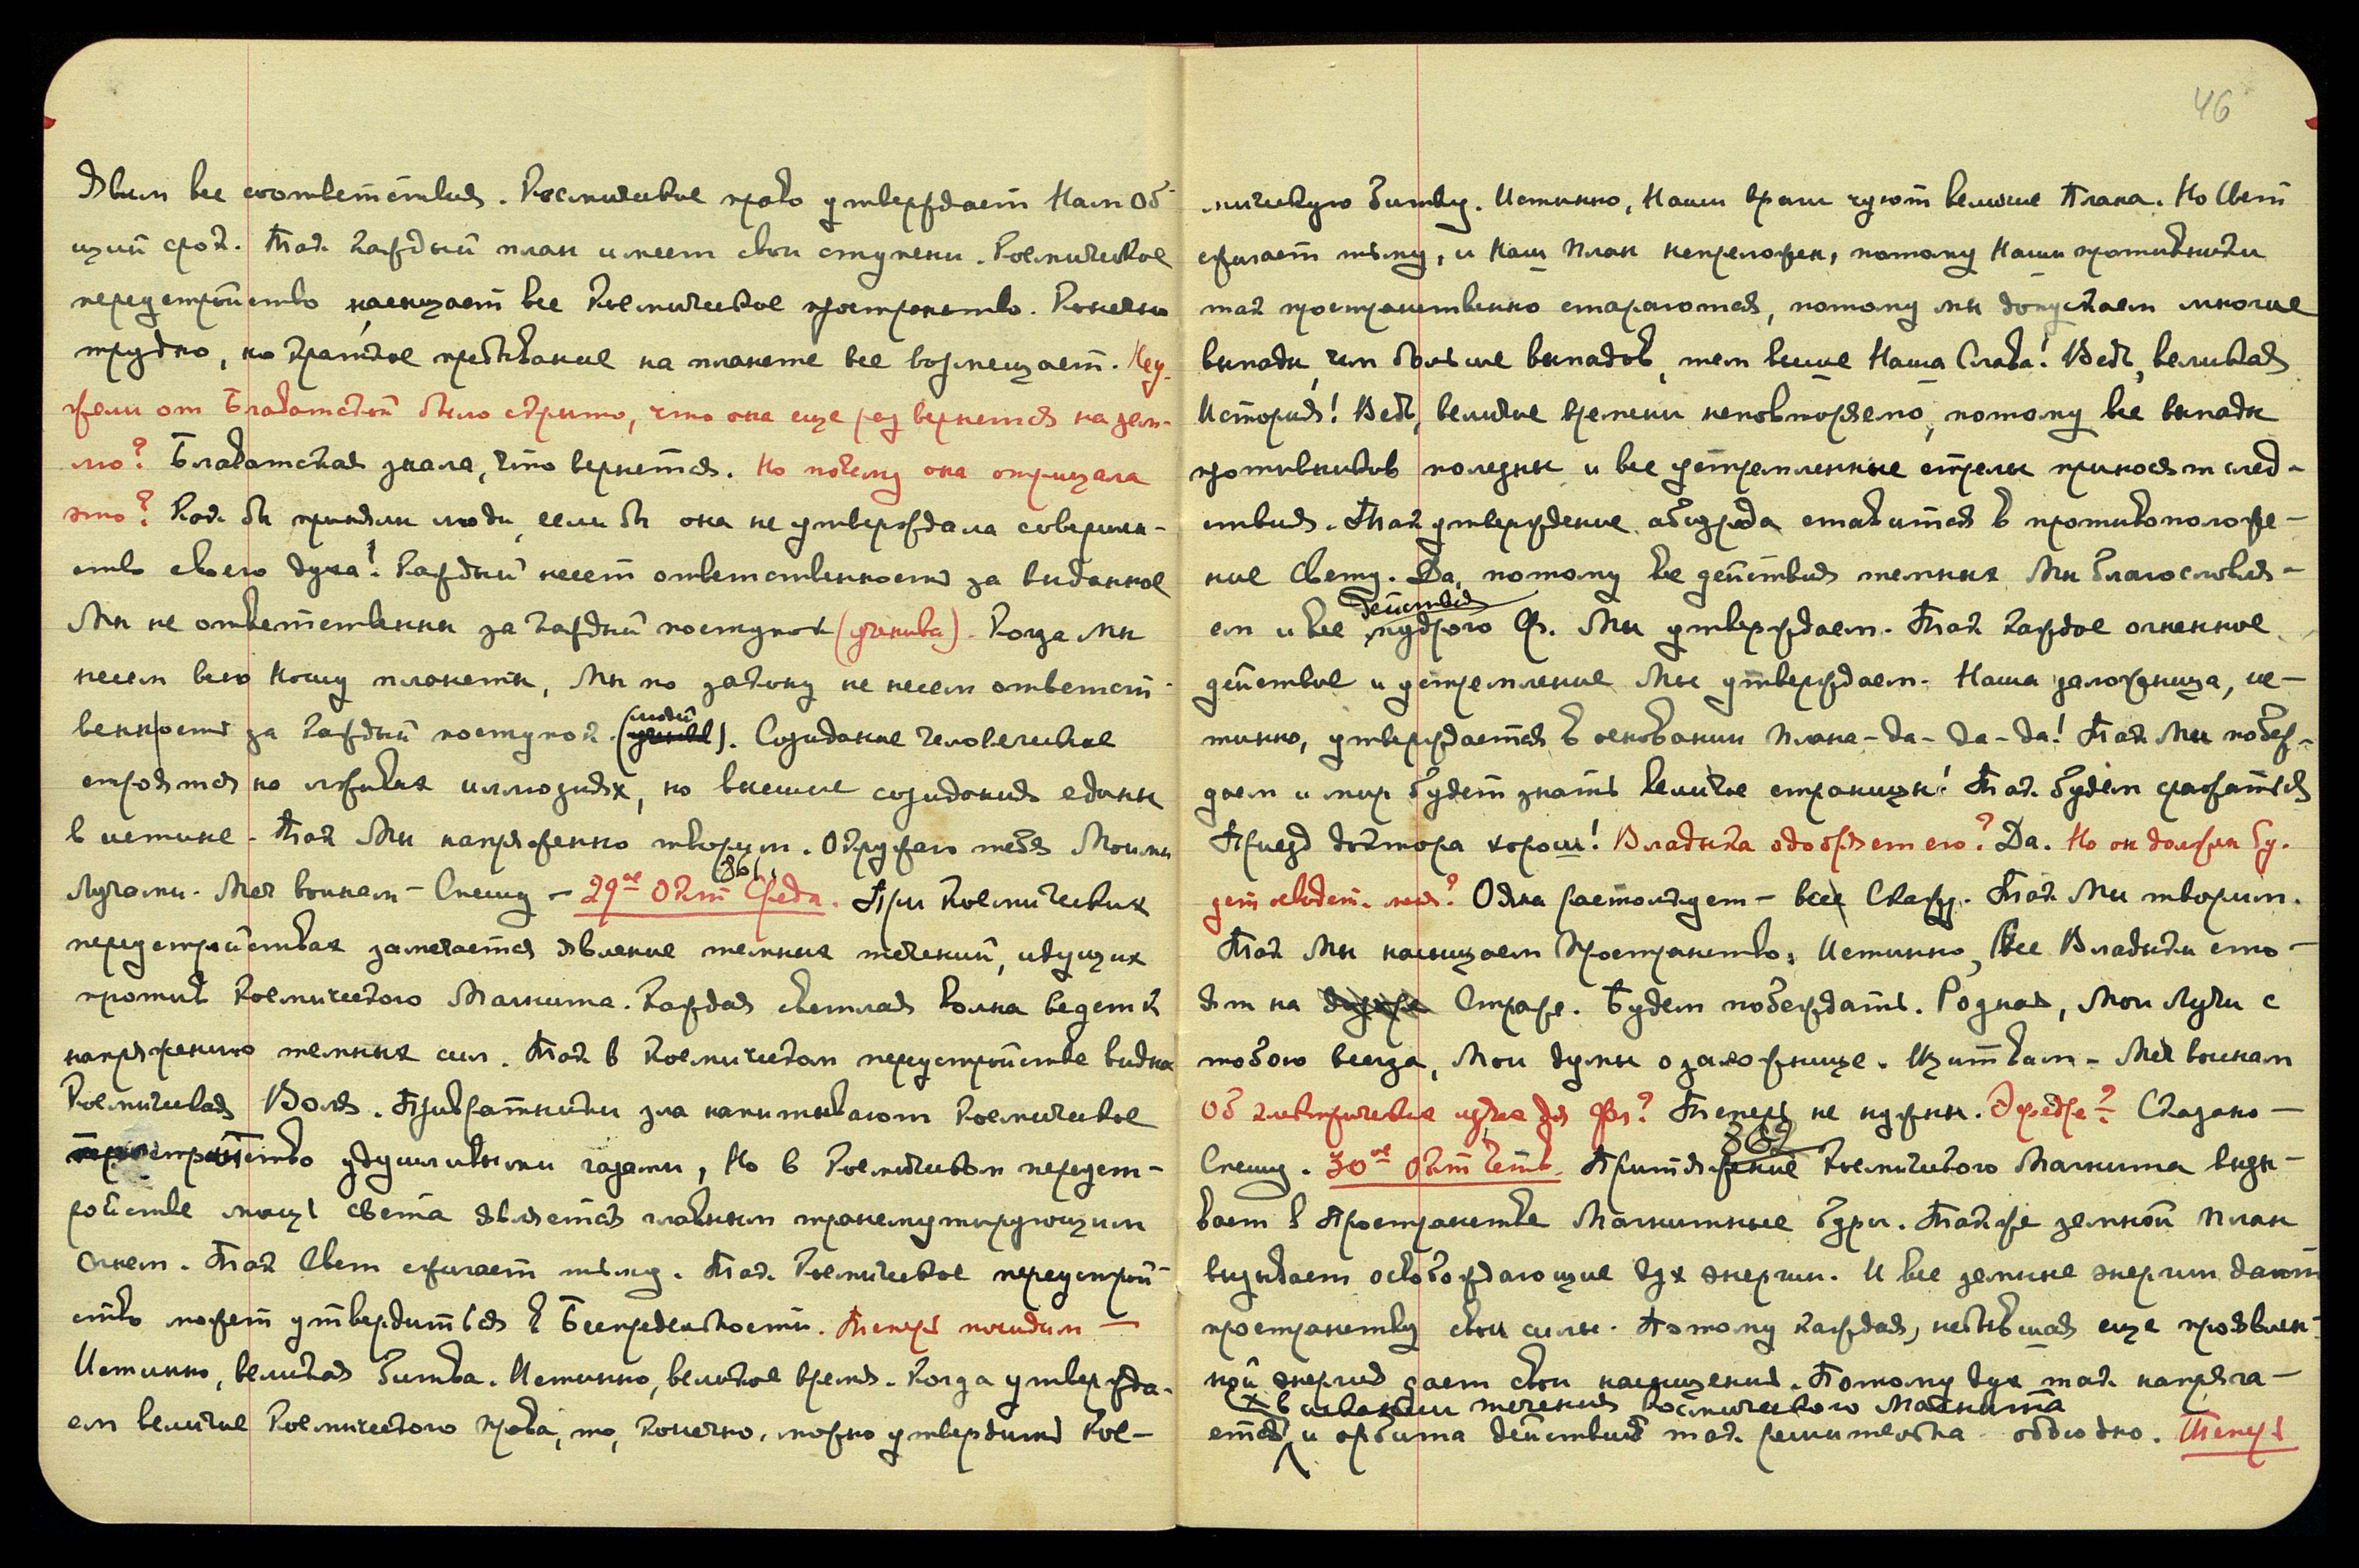 Явим все соответствия. Космическое право утверждает Нам Об-
щий срок. Так каждый план имеет свои ступени. Космическое
переустройство насыщает все Космическое пространство. Конечно
трудно, но краткое пребывание на планете все возмещает. Неу-
жели от Блаватской было скрыто, что она еще раз вернется на зем-
лю? Блаватская знала, что вернется. Но почему она отрицала
это? Как бы приняли люди, если бы она не утверждала совершен-
ство своего духа! Каждый несет ответственность за выданное
Мы не ответственны за каждый поступок (ученика). Когда мы
несем всю ношу планеты, Мы по закону не несем ответст-
венность за каждый поступок (людей). Созидание человеческое
строятся на мелких иллюзиях, но высшие созидания едины
в истине. Так Мы напряженно творим. Окружаю тебя Моими
861.
Лучами. Меч воинам – Спешу – 29ое Окт Среда. При космических
переустройствах замечается явление темных течений, идущих
против Космического Магнита. Каждая светлая волна ведет к
напряжению темных сил. Так в Космическом переустройстве видна
Космическая Воля. Привратники зла напитывают Космическое
пространство удушливыми газами, Но в Космическом переуст-
ройстве мощь света является главным трансмутирующим
Огнем. Так Свет сжигает тьму. Так Космическое переустрой-
ство может утвердиться в Беспредельности. Теперь посидим —
Истинно, великая битва. Истинно, великое время. Когда утвержда-
ем величие Космического Права, то, конечно, можно утвердить Кос-
46
мическую битву. Истинно, Наши враги чуют величие Плана. Но Свет
сжигает тьму, и Наш План непреложен, потому Наши противники
так пространственно стараются, потому мы допускаем многие
выпады, чем больше выпадов, тем выше Наша Слава! Ведь, великая
История! Ведь, величие времени неповторяемо, потому все выпады
противников полезны и все устремленные стрелы приносят след-
ствия. Так утверждение аб ставится в противоположе-
ние Свету. Да, потому все действия темных Мы благословля-
действия
ем и все мудрого Ф. Мы утверждаем. Так каждое огненное
действие и устремление Мы утверждаем. Наша заложница, ис-
тинно, утверждается в основании Плана – да – да – да! Так Мы побеж-
даем и мир будет знать величие страницы! Так будем сражаться
Приезд доктора хорош! Владыка одобряет его? Да. Но он должен бу-
дет лед? Одна растолкует – все Скажу. Так Мы творим.
Так Мы насыщаем Пространство. Истинно, Все Владыки сто-
ят на Страже. Будем побеждать. Родная, Мои Лучи с
тобою всегда, Мои думы о заложнице. Щит вам – Меч воинам
Об электрических для Фл? Теперь не нужны. Сказано —
862
Спешу. 30ое Окт Четв. Притяжение Космического Магнита вызы-
вает в Пространстве Магнитные бури. Также земной план
вызывает освобождающие дух энергии. И все земные энергии дают
пространству свои силы. Потому каждая, небывшая еще проявлен-
ной энергия дает свои насыщения. Потому дух так напряга-
х в течения Космического Магнита
ется и орбита действия так решительна обоюдно. Теперь